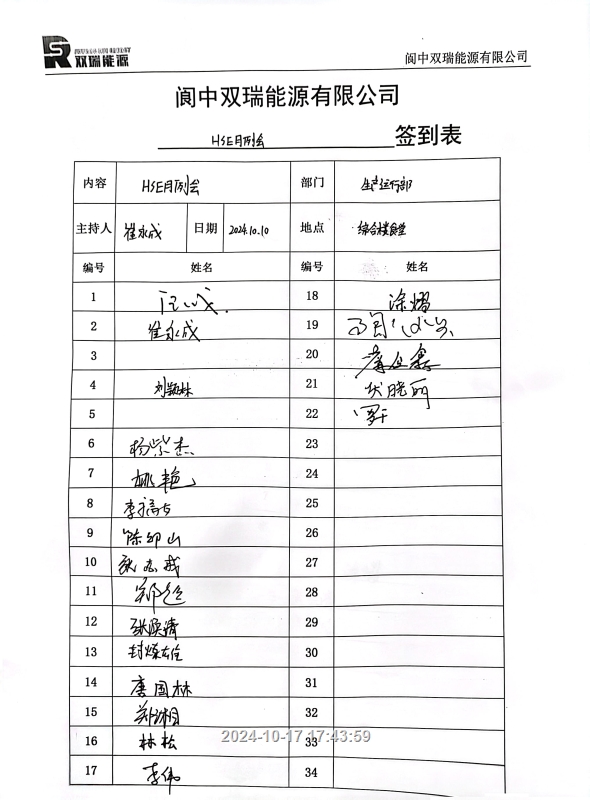 双瑞能源
阆中双瑞能源有限公司
阆中双瑞能源有限公司
HSE月例会 签到表
内容 HSE月例会 部门 生产运行部
主持人 崔永成 日期 2024.10.10 地点 综合楼食堂
编号 姓名 编号 姓名
1 18 涂熠
2 崔永成 19
3 20
4 刘颖林 21
5 22 罗干
6 杨紫杰 23
7 姚艳 24
8 25
9 陈卯山 26
10 27
11 郑超 28
12 张顺清 29
13 30
14 唐国林 31
15 32
16 林松 33
17 李伟 34
2024-10-17 17:43:59